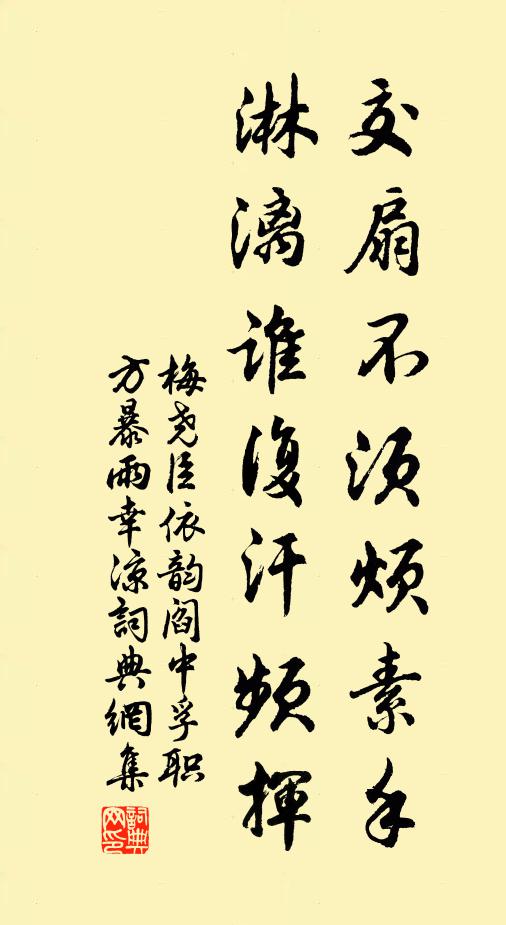 交扇不须烦素手
淋漓谁復汗频揮
梅尧臣依韵阎中孚职
方暴雨幸凉詞典網集
詞典
网印